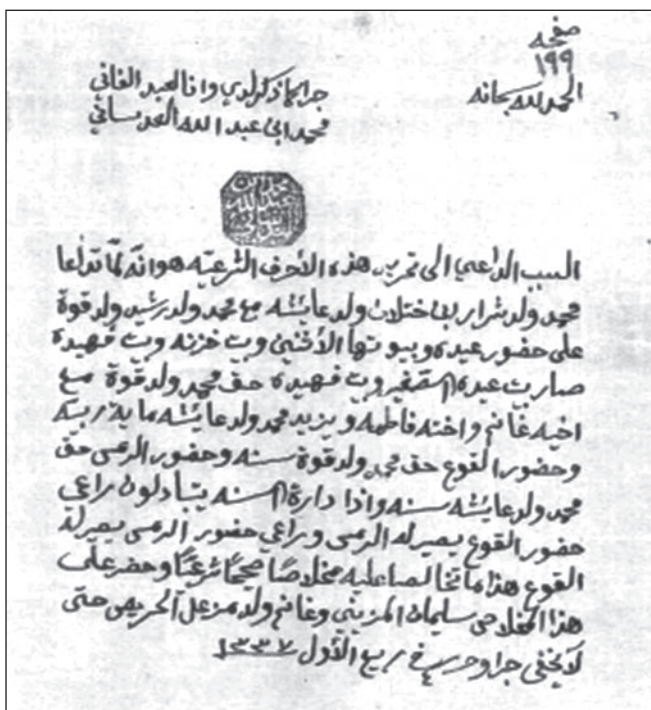 صفحه
١٩٩
الحمد لله سبحانه
جرا ما ذكر لدي وانا العبد الفاني
محمد ابن عبد الله العدساني
السبب الداعي الى تحرير هذه الأحرف الشرعيه هو انه لمّا تداعا
محمد ولد شرار بن اختلان ولد عايشه مع محمد ولد رشيد ولد قوة
على حضور عبده وبيوتها الأثنين وبيت خزنه وبيت فهيدة
صار بيت عبده الصقير وبيت فهيده حق محمد ولد قوة مع
اخيه غانم واخته فاطمه ويزيد محمد ولد عايشه ماية ربيه
وحضور القوع حق محمد ولد قوة سنه وحضور الرمى حق
محمد ولد عايشه سنه واذا دارة السنه يتبادلون راعي
حضور القوع يصير له الرمى وراعي حضور الرمى يصير له
القوع هذا ما تخالصا عليه مخلاصًا صحيحًا شرعيًا وحضر على
هذا المخلاص سليمان المزيني وغانم ولد مزعل الحريص حتى
لا يخفى جرا وحرر في ربيع الأول ١٣٣٧